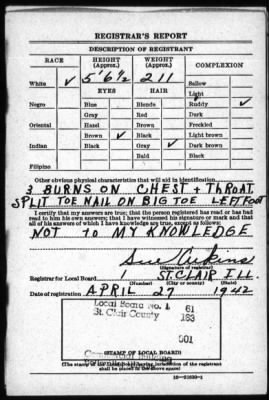 REGISTRAR'S REPORT
DESCRIPTION OF REGISTRANT
RACE HEIGHT (Approx.) WEIGHT (Approx.) COMPLEXION
White ✓ 5' 6½ 211 Sallow
Light
EYES HAIR Ruddy ✓
Negro Blue Blonde Dark
Gray Red Freckled
Oriental Hazel Brown Light brown
Brown ✓ Black Dark brown
Indian Black Gray ✓ Black
Bald
Filipino
Other obvious physical characteristics that will aid in identification
3 BURNS ON CHEST + THROAT
SPLIT TOE NAIL ON BIG TOE LEFT FOOT
I certify that my answers are true; that the person registered has read or has had
read to him his own answers; that I have witnessed his signature or mark and that
all of his answers of which I have knowledge are true, except as follows:
NOT TO MY KNOWLEDGE
Sue
(Signature of registrar)
Registrar for Local Board 1 ST. CLAIR ILL.
(Number) (City or county) (State)
Date of registration APRIL 27 1942
Local Board No. 1 61
St. Clair County 163
001
(STAMP OF LOCAL BOARD)
(The stamp of the Local Board having jurisdiction of the registrant
shall be placed in the above space)